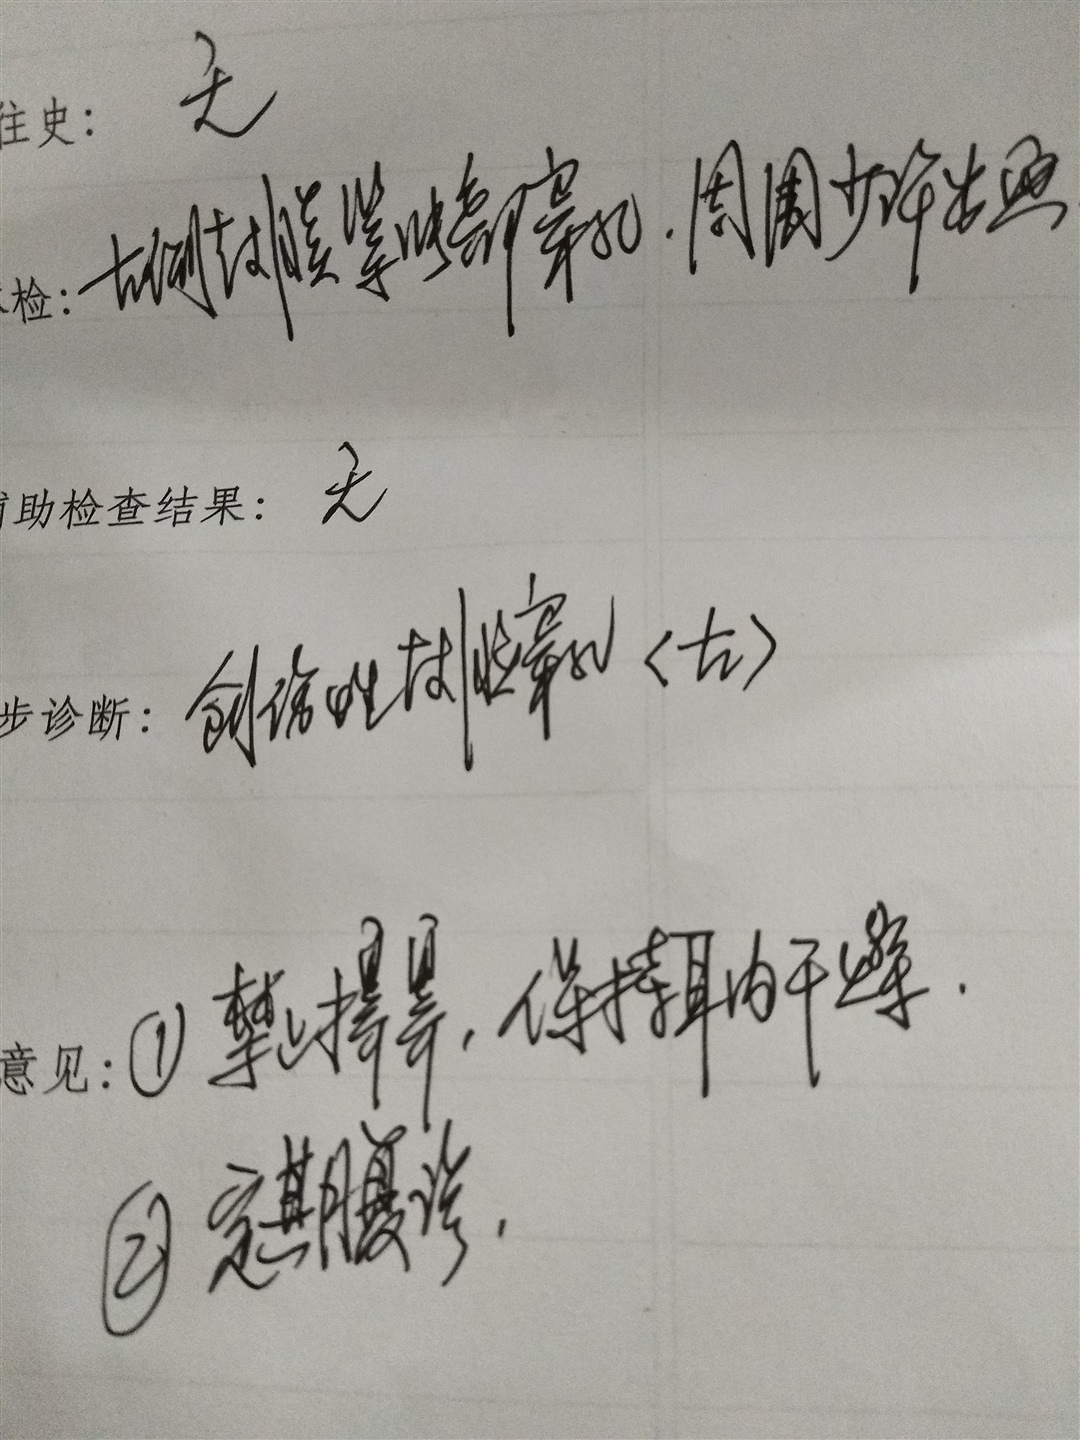 往史：无
检：右侧鼓膜紧张部穿孔．周围少许出血．
辅助检查结果：无
步诊断：创伤性鼓膜穿孔〈右〉
意见：① 禁止擤鼻，保持耳内干燥．
② 定期复诊．